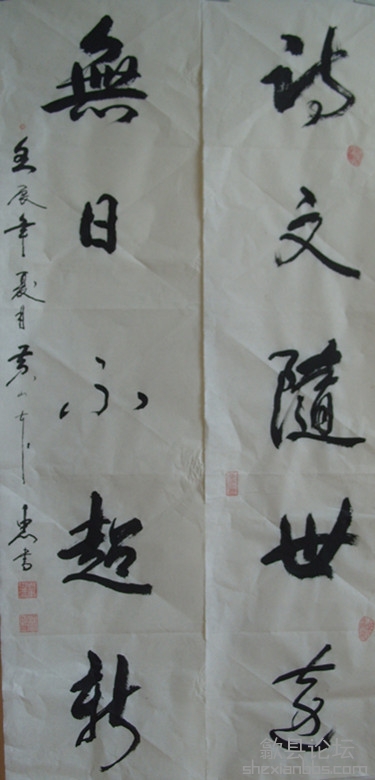 詩文隨世運
無日不超新
壬辰年夏月黄山
书
歙县论坛
shexianbbs.com